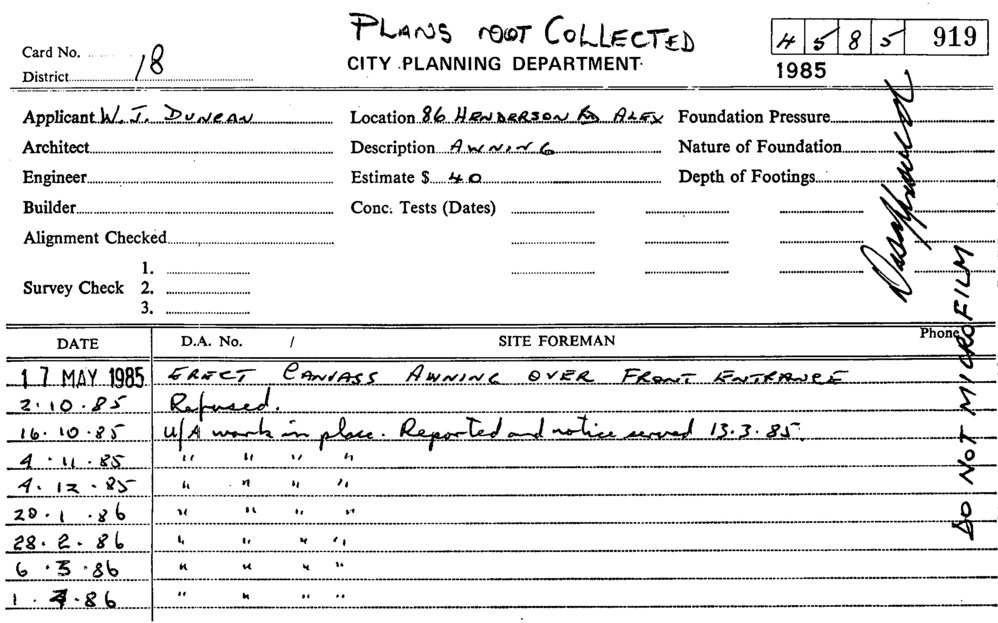 PLANS NOT COLLECTED
4 5 8 5 919
Card No. 18
CITY PLANNING DEPARTMENT
1985
District
Applicant W. J. DUNCAN Location 86 HENDERSON RD ALEX Foundation Pressure
Architect Description AWNING Nature of Foundation
Engineer Estimate $ 40 Depth of Footings
Builder Conc. Tests (Dates)
Alignment Checked
1.
Survey Check 2.
3.
DO NOT MICROFILM
DATE D.A. No. / SITE FOREMAN Phone
17 MAY 1985 ERECT CANVASS AWNING OVER FRONT ENTRANCE
2.10.85 Refused.
16.10.85 U/A work in place. Reported and notice served 13.3.85.
4.11.85 " " " "
4.12.85 " " " "
20.1.86 " " " "
28.2.86 " " " "
6.3.86 " " " "
1.4.86 " " " "